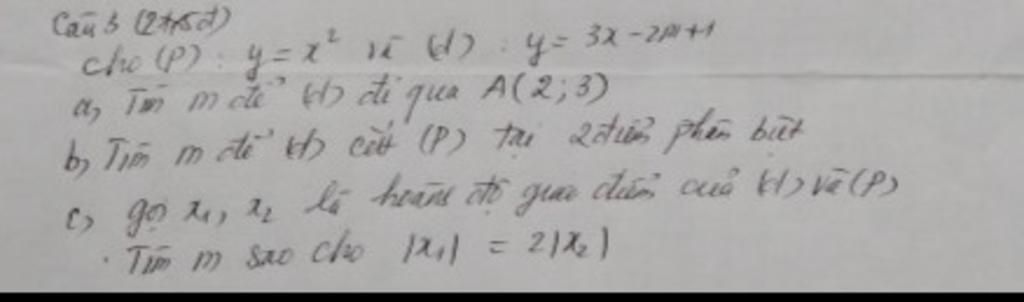 Câu 3 (2,5đ)
cho (P) : y = x² và (d) : y = 3x - 2m+1
a, Tìm m để (d) đi qua A(2;3)
b, Tìm m để (d) cắt (P) tại 2 điểm phân biệt
c, gọi x₁, x₂ là hoành độ giao điểm của (d) và (P)
. Tìm m sao cho |x₁| = 2|x₂|